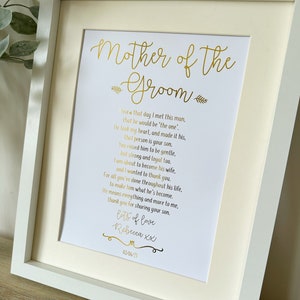 Mother of the
Groom
I knew that day I met this man,
that he would be 'the one'.
He took my heart, and made it his,
that person is your son.
You raised him to be gentle,
and strong and loyal too.
I am about to become his wife,
and I wanted to thank you.
For all you've done throughout his life,
to make him what he's become.
He means everything and more to me,
Thank you for sharing your son.
Lots of love
Rebecca xxx